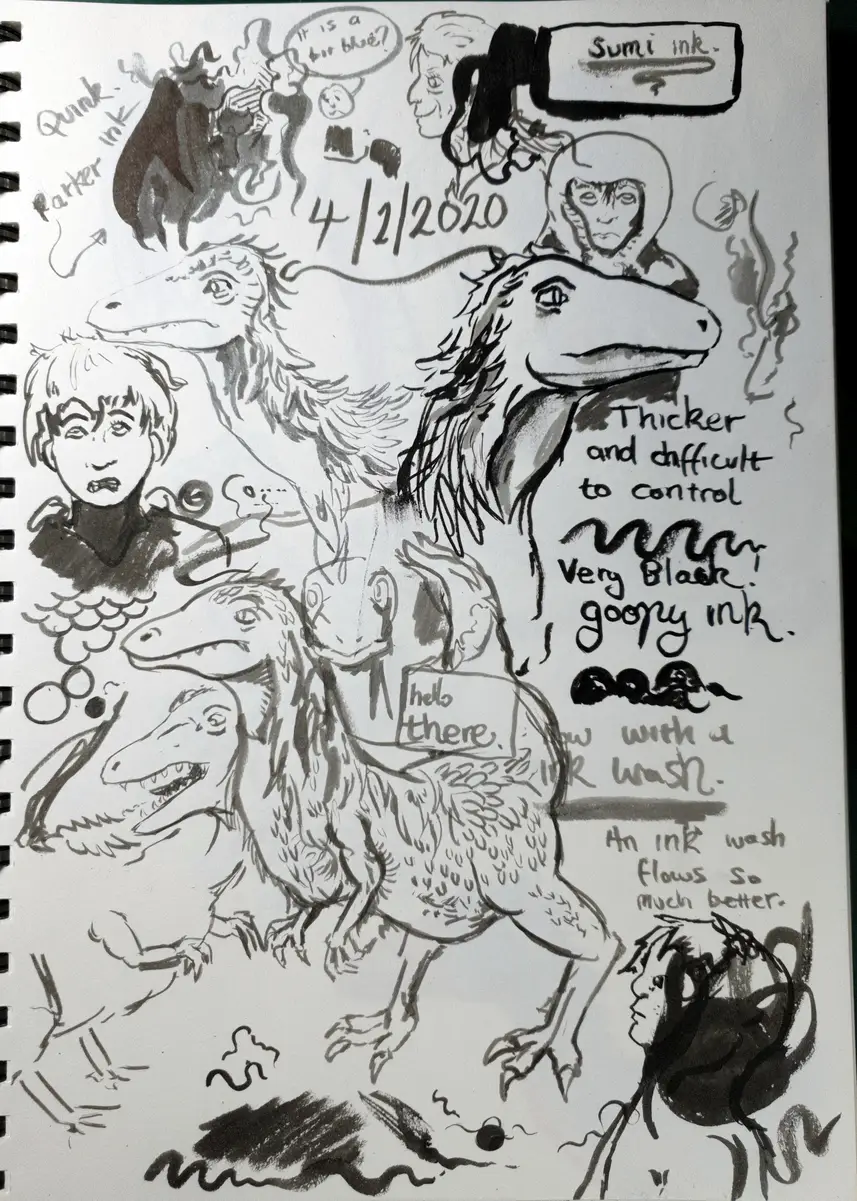 Quink.
Parker ink
it is a
bit blue?
Sumi ink.
?
4/2/2020
Thicker
and difficult
to control
Very Black!
goopy ink.
hello
there.
with a
ink wash.
An ink wash
flows so
much better.